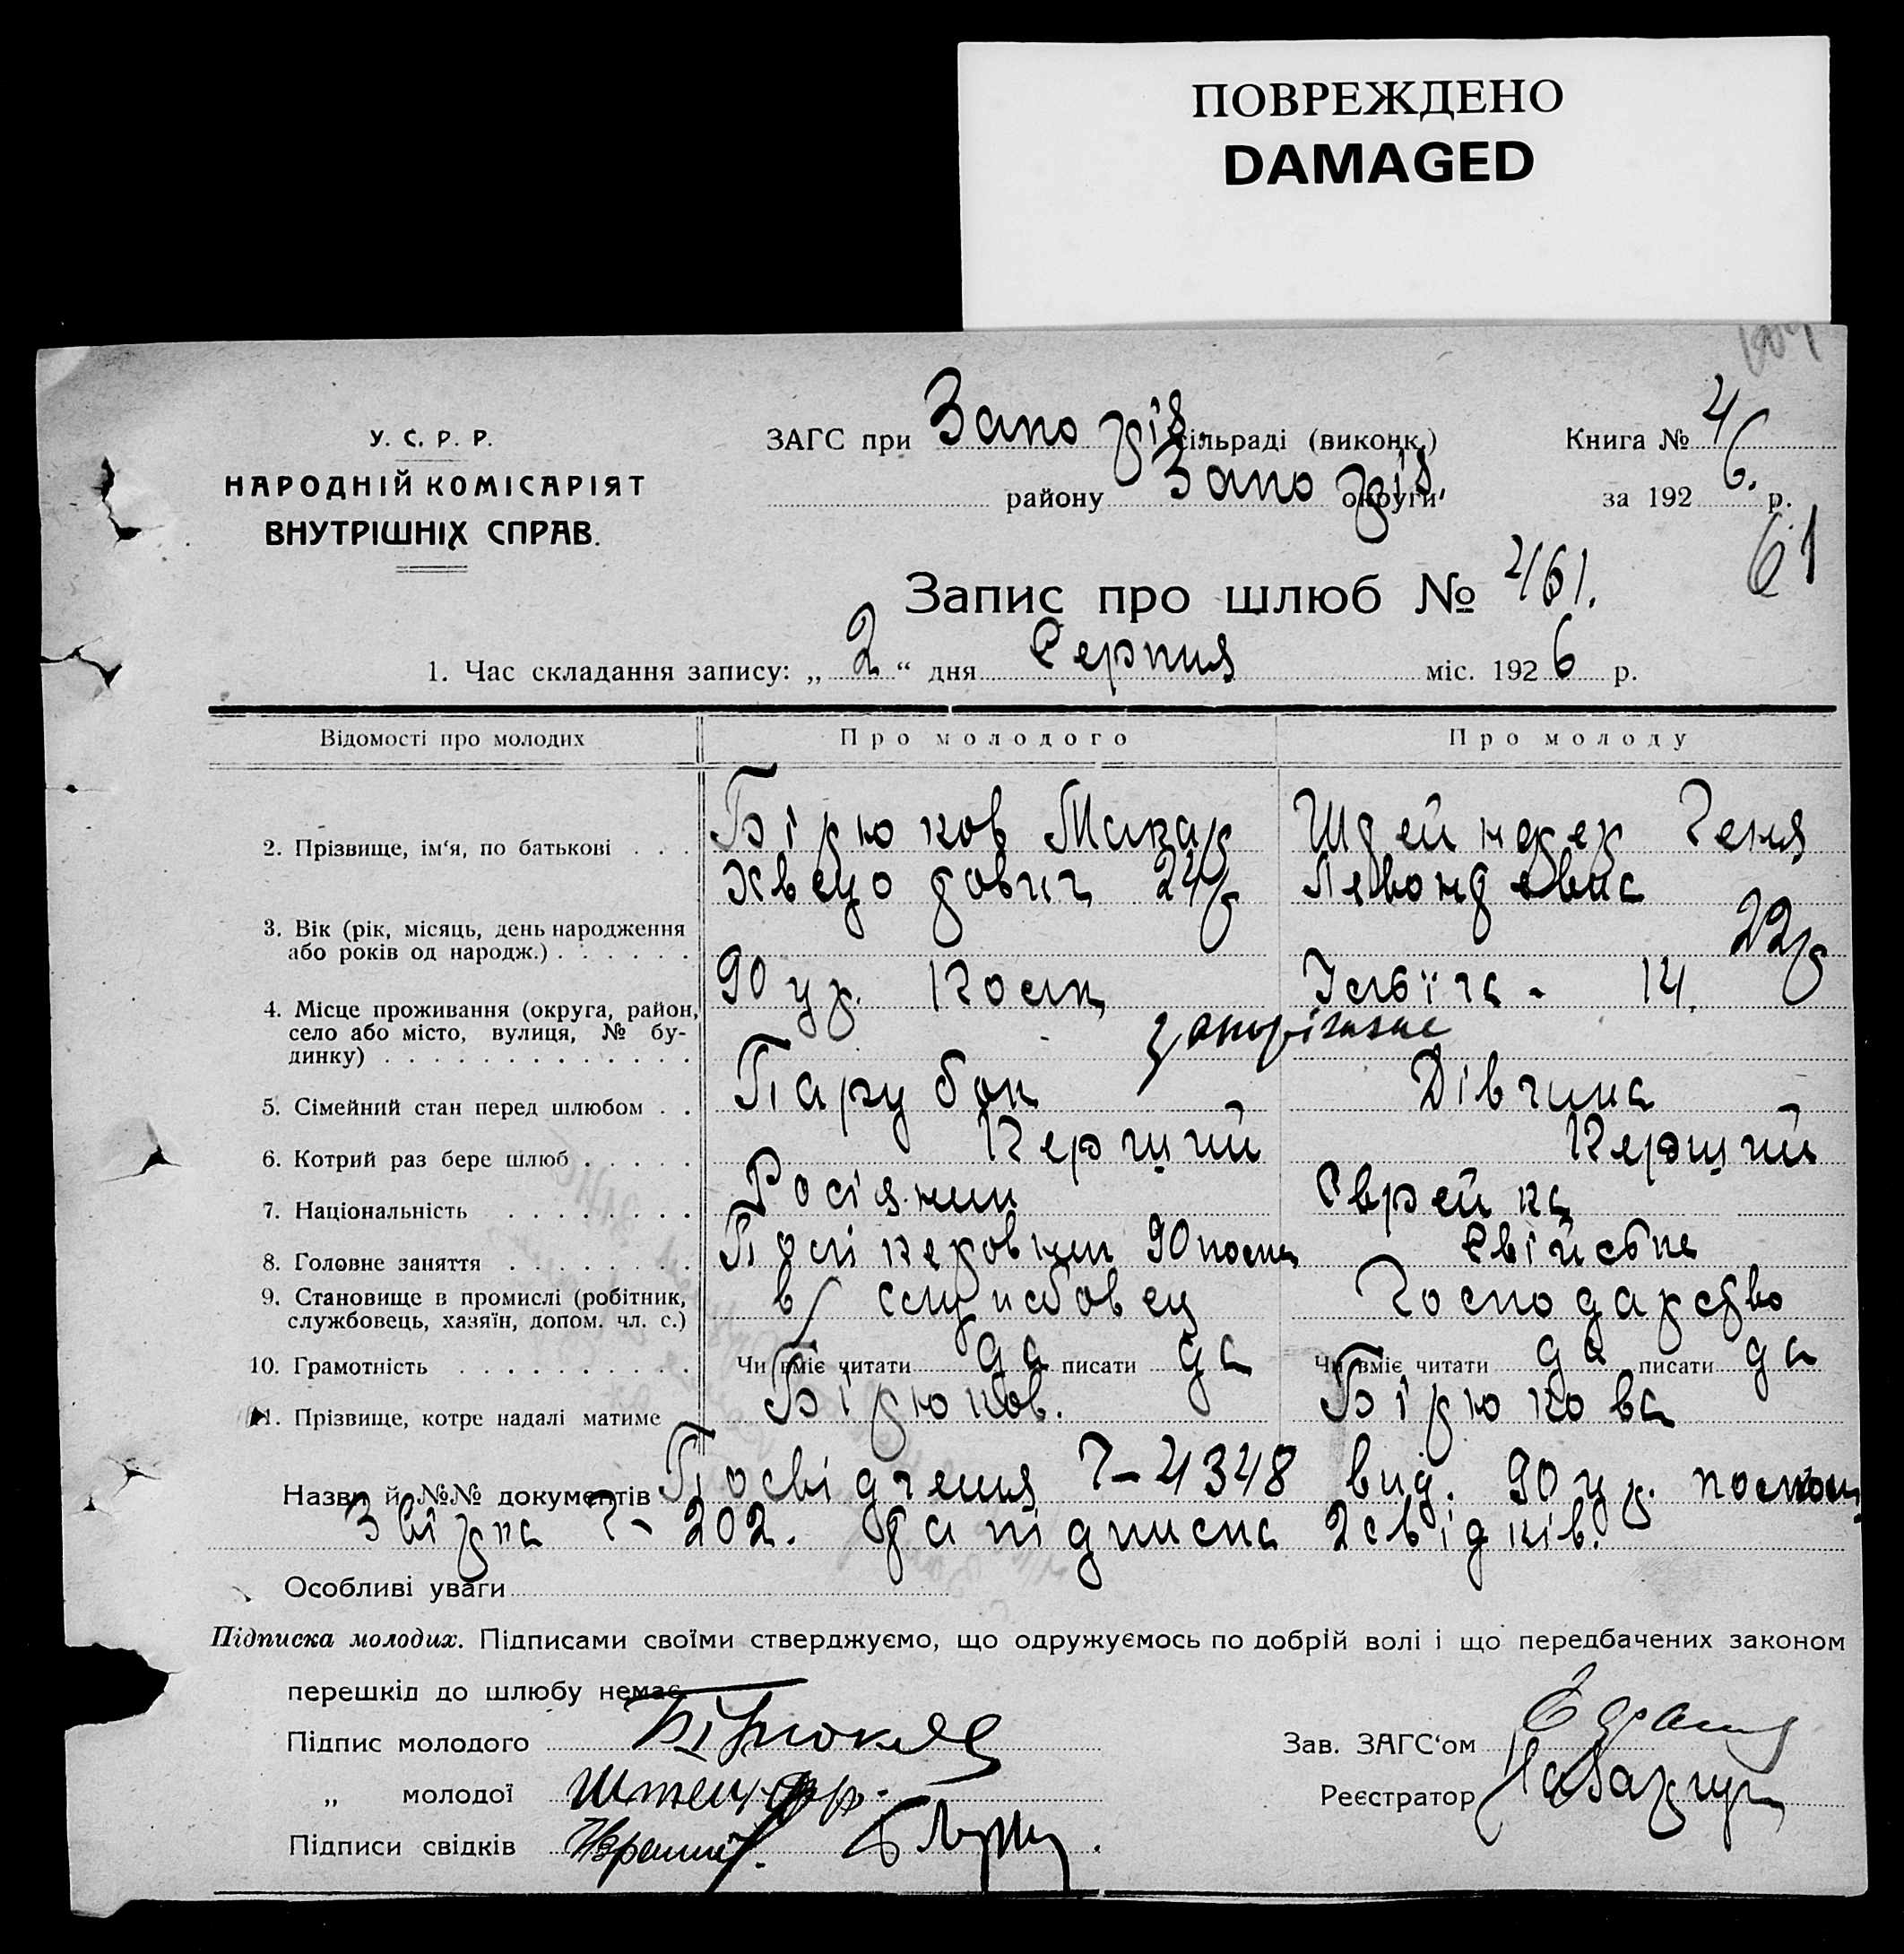 ПОВРЕЖДЕНО
DAMAGED
У. С. Р. Р.
НАРОДНІЙ КОМІСАРІЯТ
ВНУТРІШНІХ СПРАВ.
ЗАГС при Запоріз. сільраді (виконк.) Книга № 4
району Запоріз. округи за 1926. р.
61
Запис про шлюб № 461.
1. Час складання запису: „2“ дня Серпня міс. 1926 р.
Відомості про молодих Про молодого Про молоду
2. Прізвище, ім‘я, по батькові Бірюков Макар Штейнгер Геня
Хведорович 24р
3. Вік (рік, місяць, день народження
або років од народж.) 22р
4. Місце проживання (округа, район,
село або місто, вулиця, № бу-
динку) 90 Ілліча - 14.
5. Сімейний стан перед шлюбом Парубок Дівчина
6. Котрий раз бере шлюб Перший Перший
7. Національність Росіянин Єврейка
8. Головне заняття 90 Свійське
9. Становище в промислі (робітник,
службовець, хазяїн, допом. чл. с.) службовец Господарство
10. Грамотність Чи вміє читати да писати да Чи вміє читати да писати да
11. Прізвище, котре надалі матиме Бірюков. Бірюкова
Назви й №№ документів Посвідчення Ч-4348 вид. 90
Ч- 202. та підписка 2 свідків.
Особливі уваги
Підписка молодих. Підписами своїми стверджуємо, що одружуємось по добрій волі і що передбачених законом
перешкід до шлюбу немає.
Підпис молодого Бірюков Зав. ЗАГС‘ом
„ молодої Реєстратор
Підписи свідків